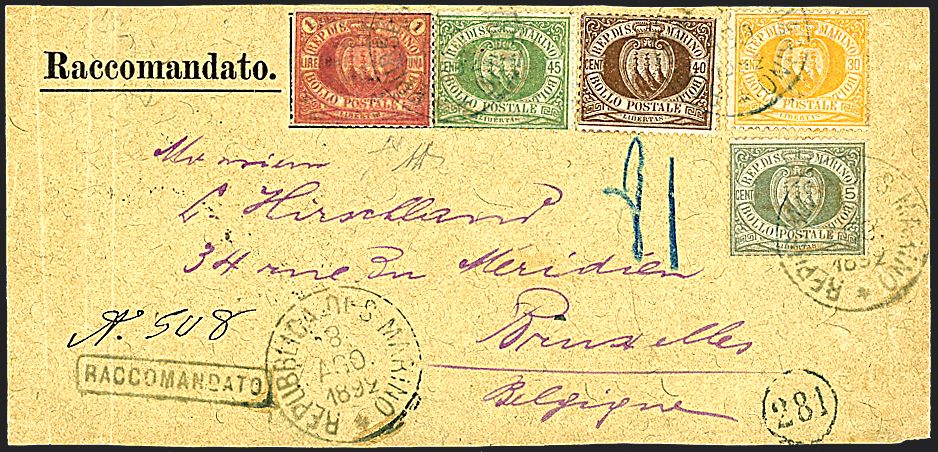 Raccomandato.
1 REP. DI S. MARINO 1
LIRE UNA
BOLLO POSTALE
LIBERTAS
REP. DI S. MARINO
CENT 45
BOLLO POSTALE
LIBERTAS
REP. DI S. MARINO
CENT 40
BOLLO POSTALE
LIBERTAS
REP. DI S. MARINO
CENT 30
BOLLO POSTALE
LIBERTAS
REP. DI S. MARINO
CENT 5
BOLLO POSTALE
LIBERTAS
Monsieur
L Hirschland
34 rue du Méridien
Bruxelles
Belgique
No. 508
RACCOMANDATO
REPUBBLICA DI S. MARINO
8
AGO.
1892
S. MARINO
1892
281